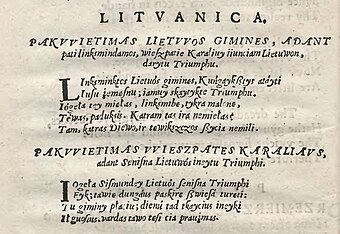 LITVANICA.
PAKVVIETIMAS LIETVVOS GIMINES, ADANT
pati linksmindamos, wiesʒpatie Karaliuy iiunciam Lietuwon,
darytu Triumphu.
LInksminktes Lietuôs gimines,
Iusu ʒemesnu; iamuy skaytykec Triumphu.
Iôgela tey mielas, linksmibe, tykra malone,
Tewas, padukus. Katram tas ira nemielasę
Tam, kuras Diewo, ir tewikszczos sʒycia nemili.
PAKVVIETIMAS VVIESZPATES KARALIAVS,
adant Senisna Lietuwôs inʒytu Triumphi.
IOgela Sismundey Lietuôs senisna Triumphi
tawie dungdus paskire swiesa tureti:
Tu giminy placiu; dieni tad tkaycius inʒyki
vardas tawo tesi cia praujmas.